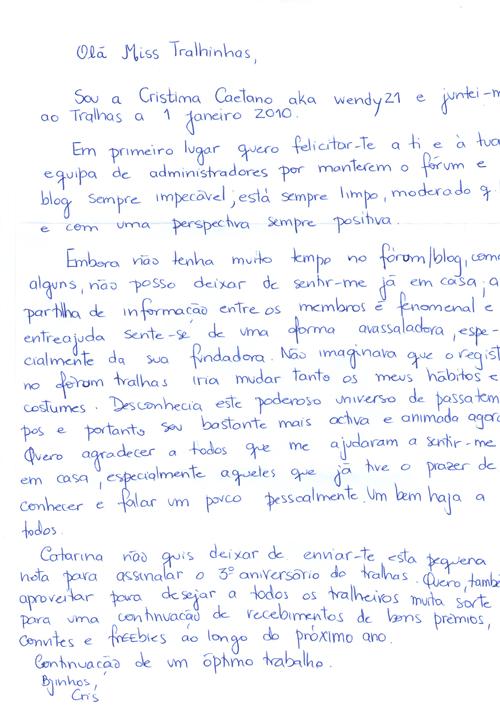 Olá Miss Tralhinhas,
Sou a Cristina Caetano aka wendy21 e juntei-m
ao Tralhas a 1 janeiro 2010.
Em primeiro lugar quero felicitar-te a ti e à tua
equipa de administradores por manterem o fórum e
blog sempre impecável; está sempre limpo, moderado q.
e com uma perspectiva sempre positiva.
Embora não tenha muito tempo no fórum/blog, como
alguns, não posso deixar de sentir-me já em casa; a
partilha de informação entre os membros é fenomenal e
entreajuda sente-se de uma forma avassaladora, espe-
cialmente da sua fundadora. Não imaginava que o regist
no fórum tralhas iria mudar tanto os meus hábitos e
costumes. Desconhecia este poderoso universo de passatem
pos e portanto sou bastante mais activa e animada agora
Quero agradecer a todos que me ajudaram a sentir-me
em casa, especialmente aqueles que já tive o prazer de
conhecer e falar um pouco pessoalmente. Um bem haja a
todos.
Catarina não quis deixar de enviar-te esta pequena
nota para assinalar o 3º aniversário do tralhas. Quero, també
aproveitar para desejar a todos os tralheiros muita sorte
para uma continuação de recebimentos de bons prémios,
convites e freebies ao longo do próximo ano.
Continuação de um óptimo trabalho.
Bjinhos,
Cris